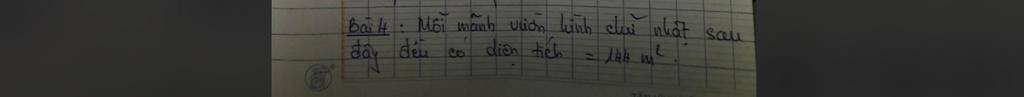 Bài 4 : Mỗi mãnh vườn hình chữ nhật sau
đây đều có diện tích = 144 m².